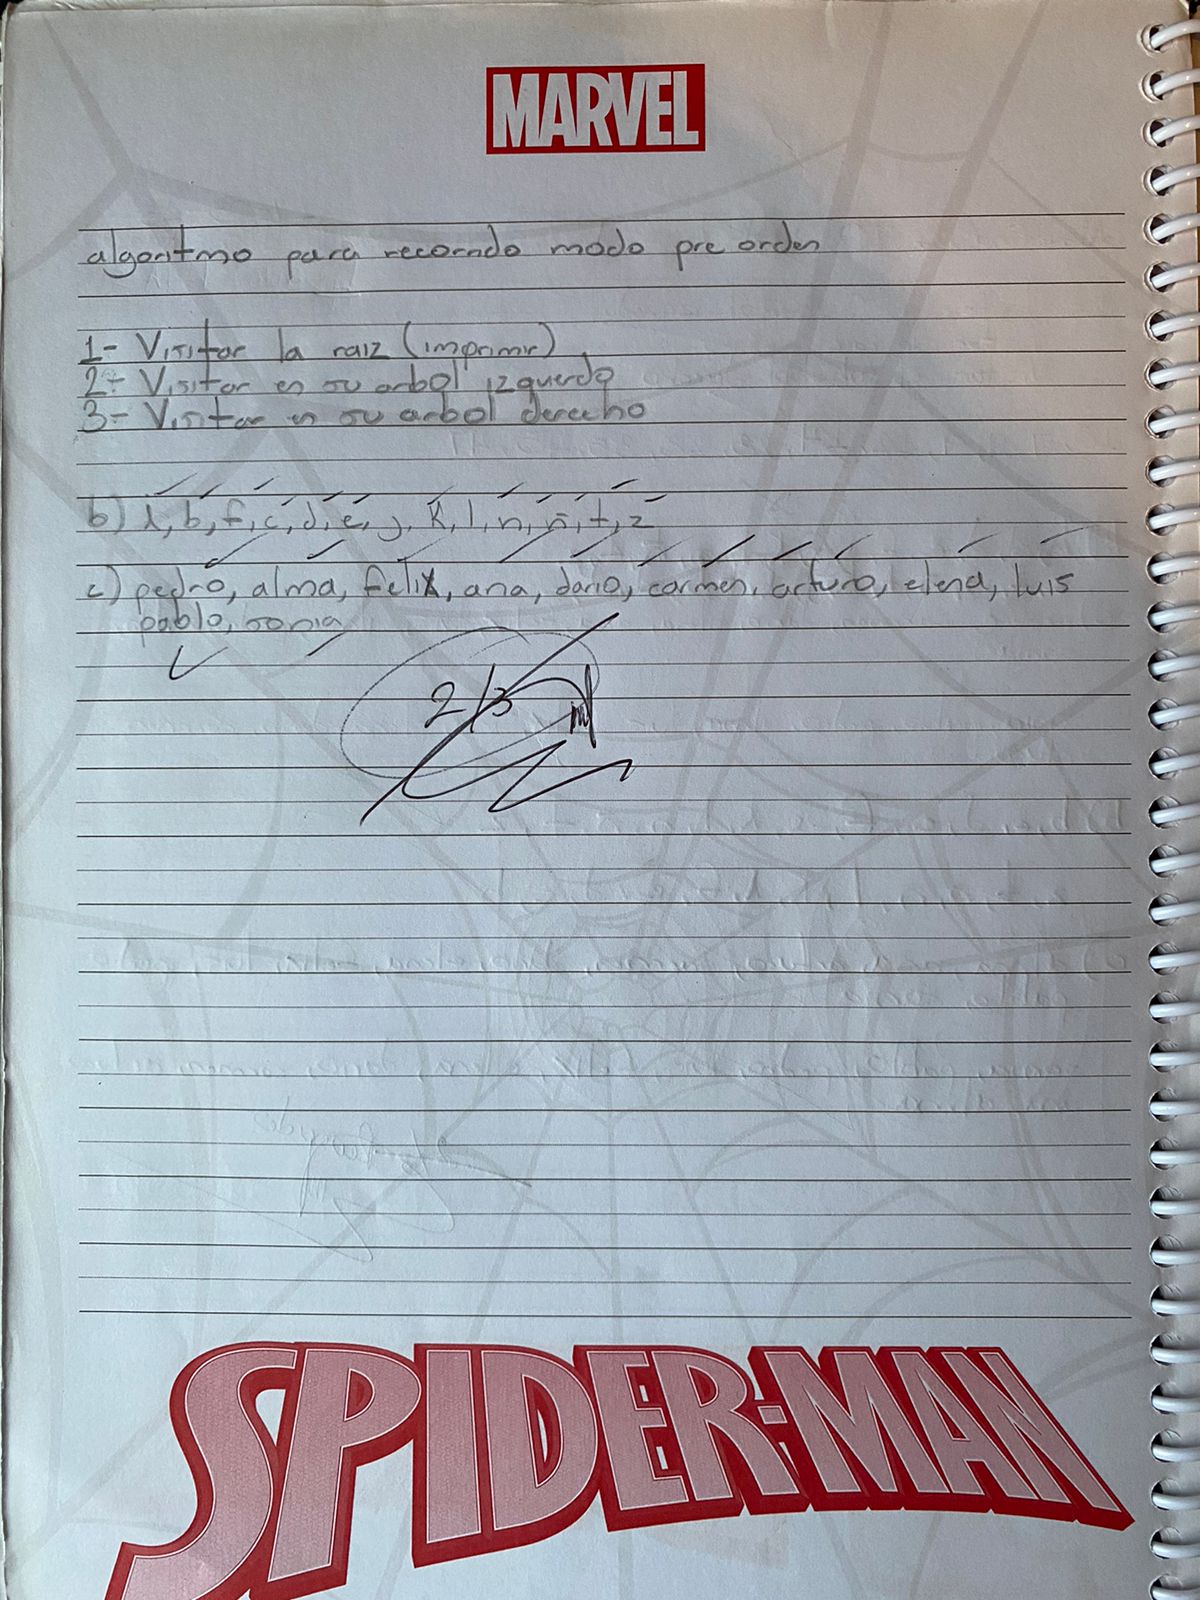 MARVEL
algoritmo para recorrido modo pre orden
1- Visitar la raiz (imprimir)
2- Visitar en su arbol izquierdo
3- Visitar en su arbol derecho
b) i, b, f, c, d, e, j, k, l, n, ñ, t, z
c) pedro, alma, felix, ana, dario, carmen, arturo, elena, luis
pablo, sonia
2/3
SPIDER-MAN